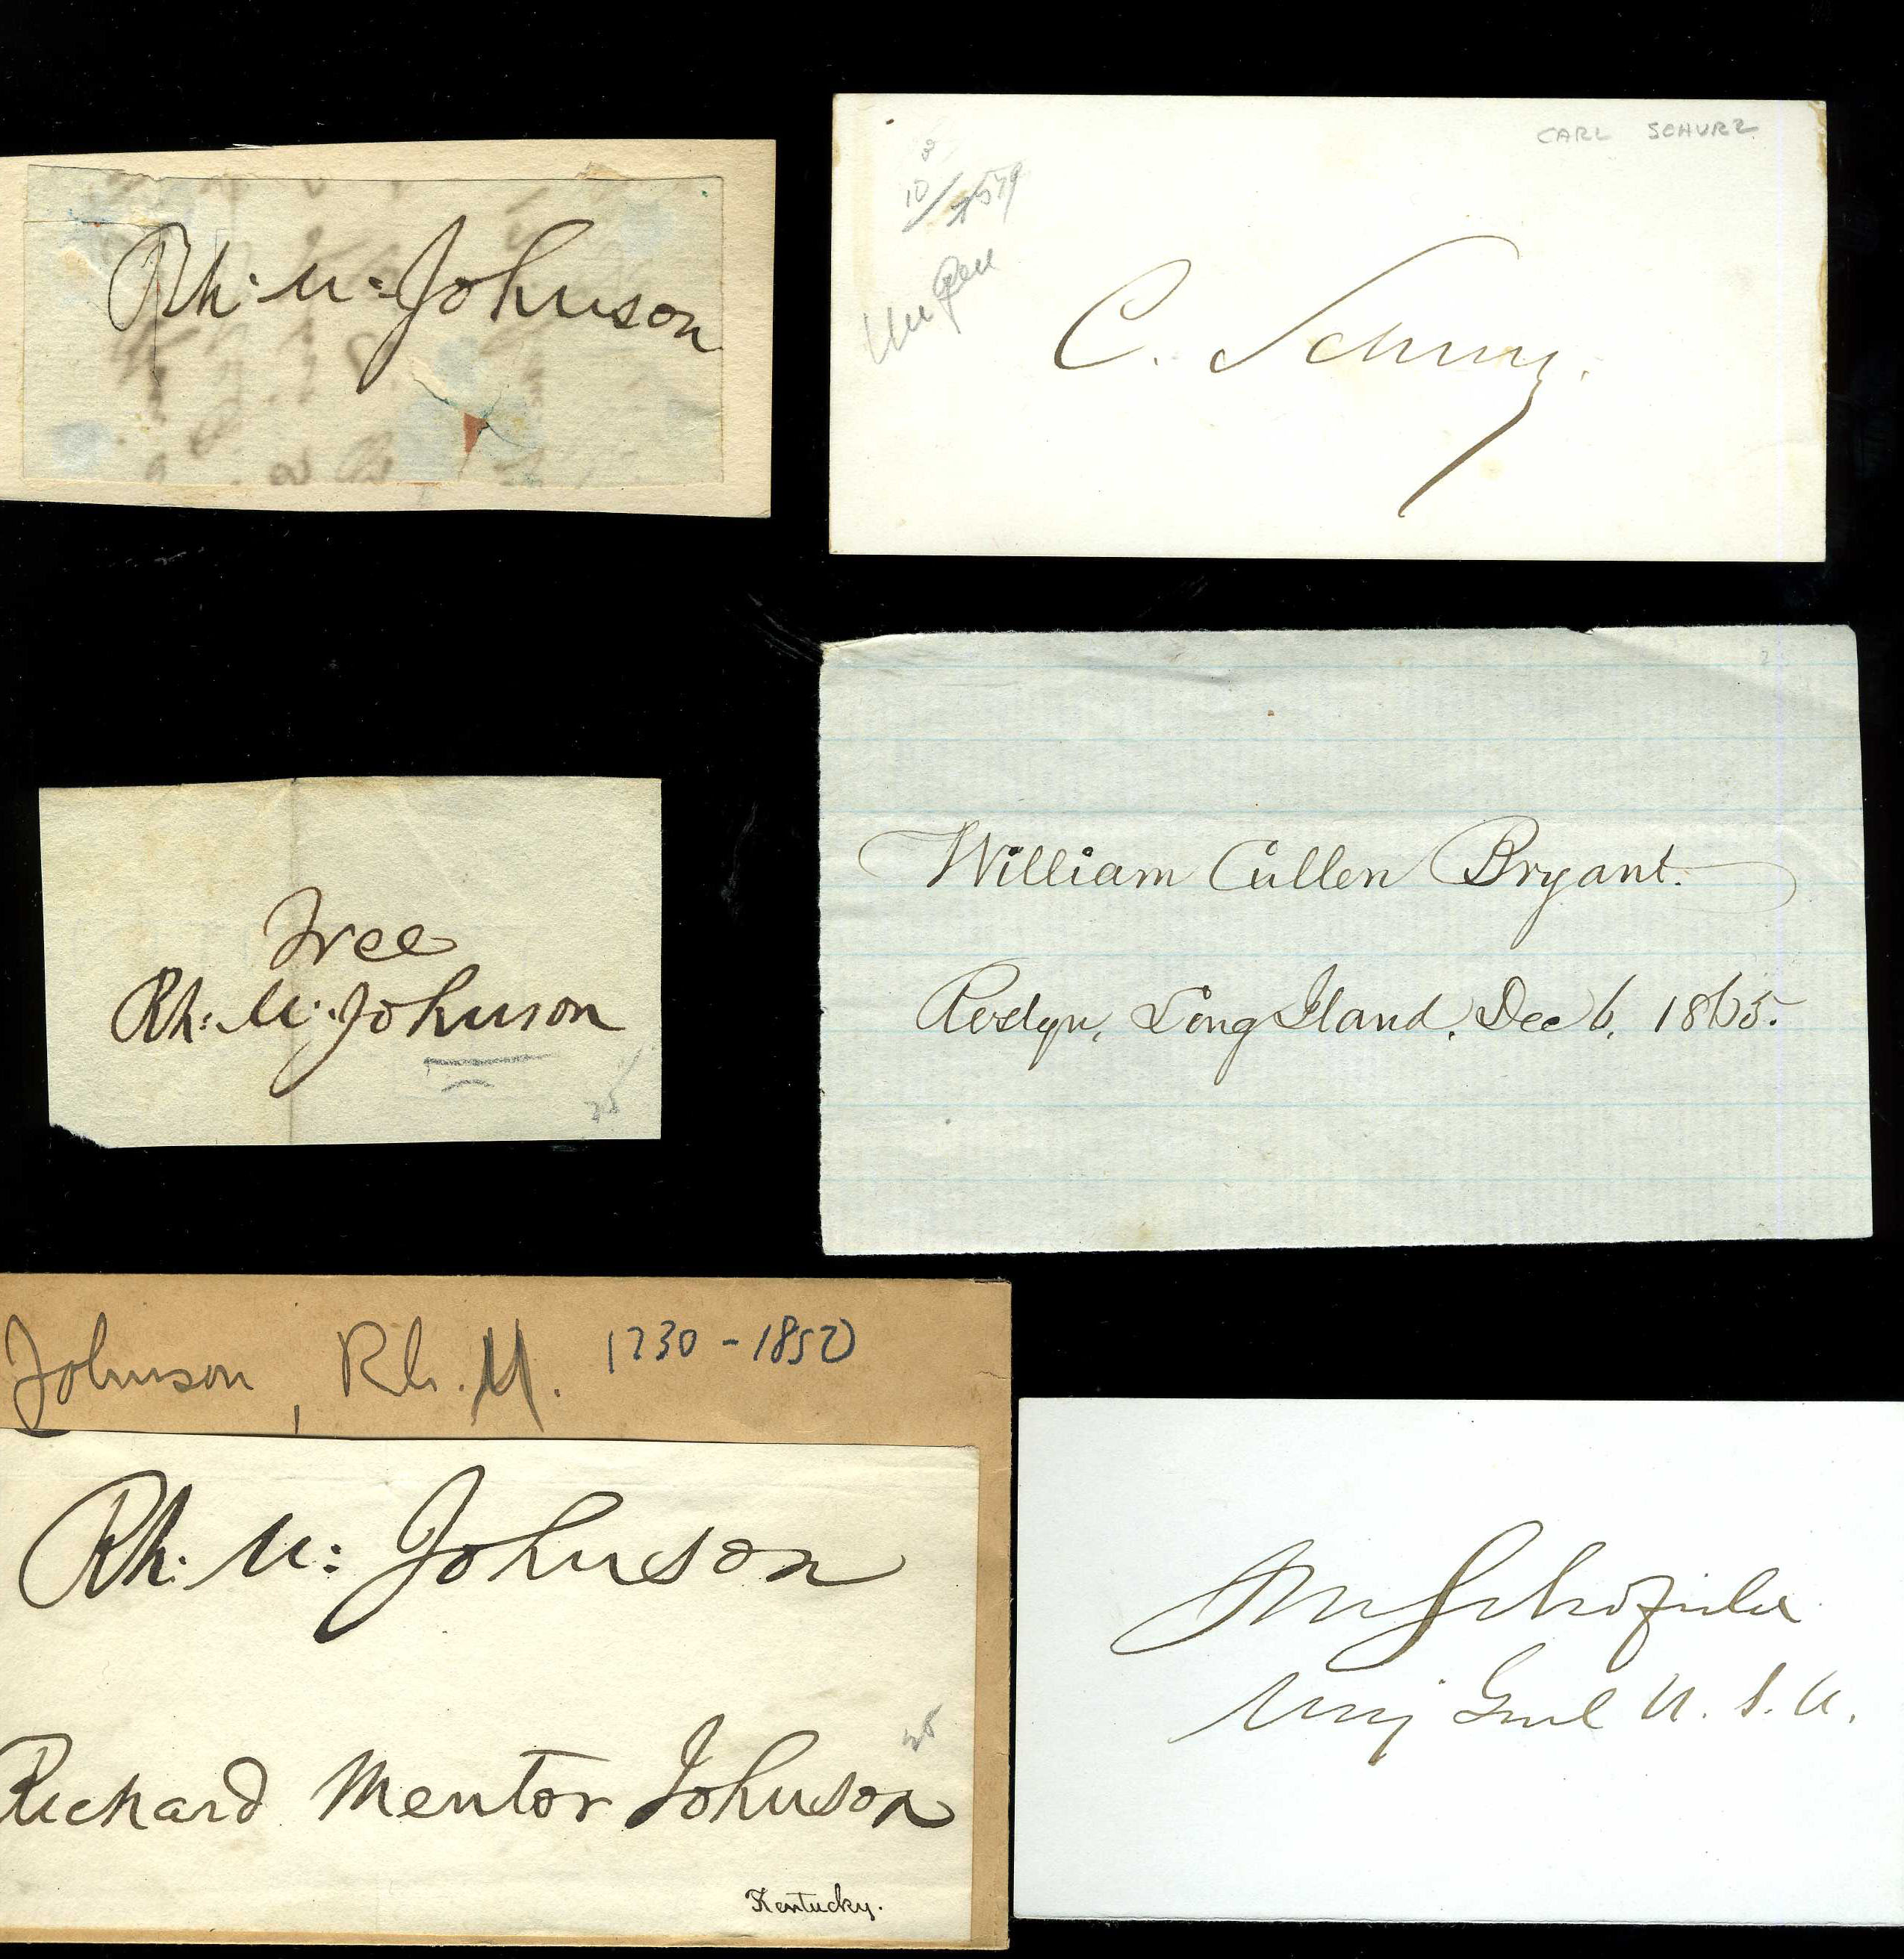 Rh: M: Johnson
CARL SCHURZ
C. Schurz.
Free
Rh: M: Johnson
25
William Cullen Bryant.
Roslyn, Long Island, Dec 6, 1865.
Johnson, Rh. M. 1730 - 1850
Rh: M: Johnson
Richard Mentor Johnson
25
Kentucky.
JM Schofield
Maj Genl U. S. A.